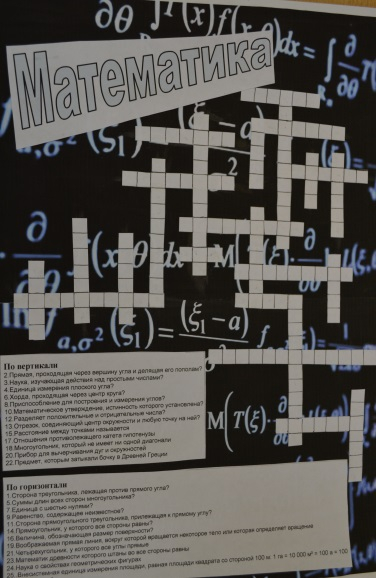 Математика
По вертикали
2.Прямая, проходящая через вершину угла и делящая его пополам?
3.Наука, изучающая действия над простыми числами?
4.Единица измерения плоского угла?
6.Хорда, проходящая через центр круга?
8.Приспособление для построения и измерения углов?
10.Математическое утверждение, истинность которого установлена?
12.Разделяет положительные и отрицательные числа?
13.Отрезок, соединяющий центр окружности и любую точку на ней?
15.Расстояние между точками называется
17.Отношения противолежащего катета гипотенузы
18.Многоугольник, который не имеет ни одной диагонали
20.Прибор для вычерчивания дуг и окружностей
22.Предмет, которым затыкали бочку в Древней Греции
По горизонтали
1.Сторона треугольника, лежащая против прямого угла?
5.Суммы длин всех сторон многоугольника?
7.Единица с шестью нулями?
9.Равенство, содержащее неизвестное?
11.Сторона прямоугольного треугольника, прилежащая к прямому углу?
14.Прямоугольник, у которого все стороны равны?
16.Величина, обозначающая размер поверхности?
19.Воображаемая прямая линия, вокруг которой вращается некоторое тело или которая определяет вращение
21.Четырехугольник, у которого все углы прямые
23.Математик древности которого штаны во все стороны равны
24.Наука о свойствах геометрических фигурах
25.Внесистемная единица измерения площади, равная площади квадрата со стороной 100 м. 1 га = 10 000 м² = 100 а = 100